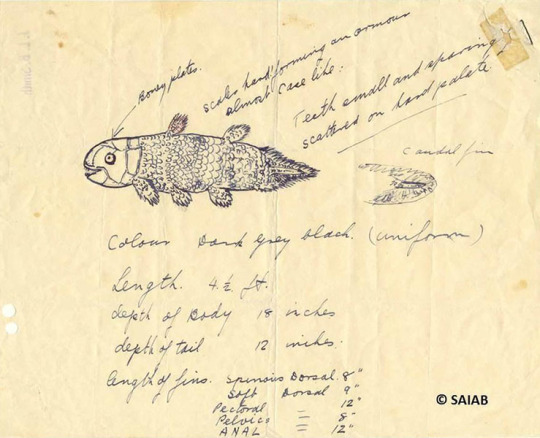 Boney plates.
scales hard forming an armour
almost case like:
Teeth small and sparing
scattered on hard palate
Caudal fin
Colour Dark grey black. (uniform)
Length. 4½ ft.
depth of Body 18 inches
depth of tail 12 inches.
length of fins. Spinous Dorsal. 8"
Soft Dorsal 9"
Pectoral = 12"
Pelvics = 8"
ANAL = 12"
© SAIAB